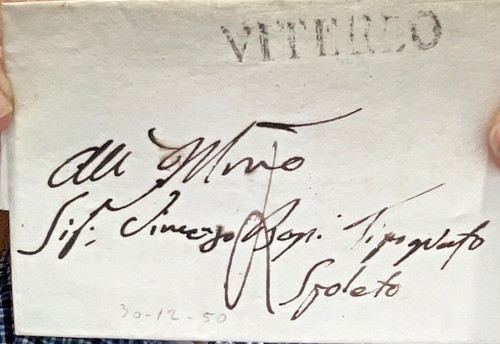 VITERBO
All Illmo
Sig. Vincenzo Bossi Tipografo
Spoleto
30-12-50